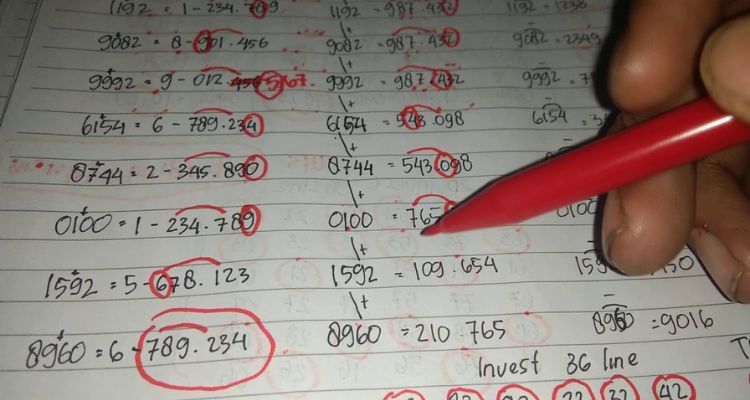 1192 = 1 - 234.789 1192 = 987.432 1192 = 1236
9082 = 8 - 901.456 9082 = 987.432 9082 = 2349
9992 = 9 - 012. 567. 9992 = 987.432 9992 = 
6154 = 6 - 789.234 6154 = 543.098 6154 =
8744 = 2 - 345.890 8744 = 543.098
0100 = 1 - 234.789 0100 = 765 0100
1592 = 5 - 678.123 1592 = 109.654
8960 = 6 - 789.234 8960 = 210.765 8960 = 9016
Invest 36 line
22 32 42